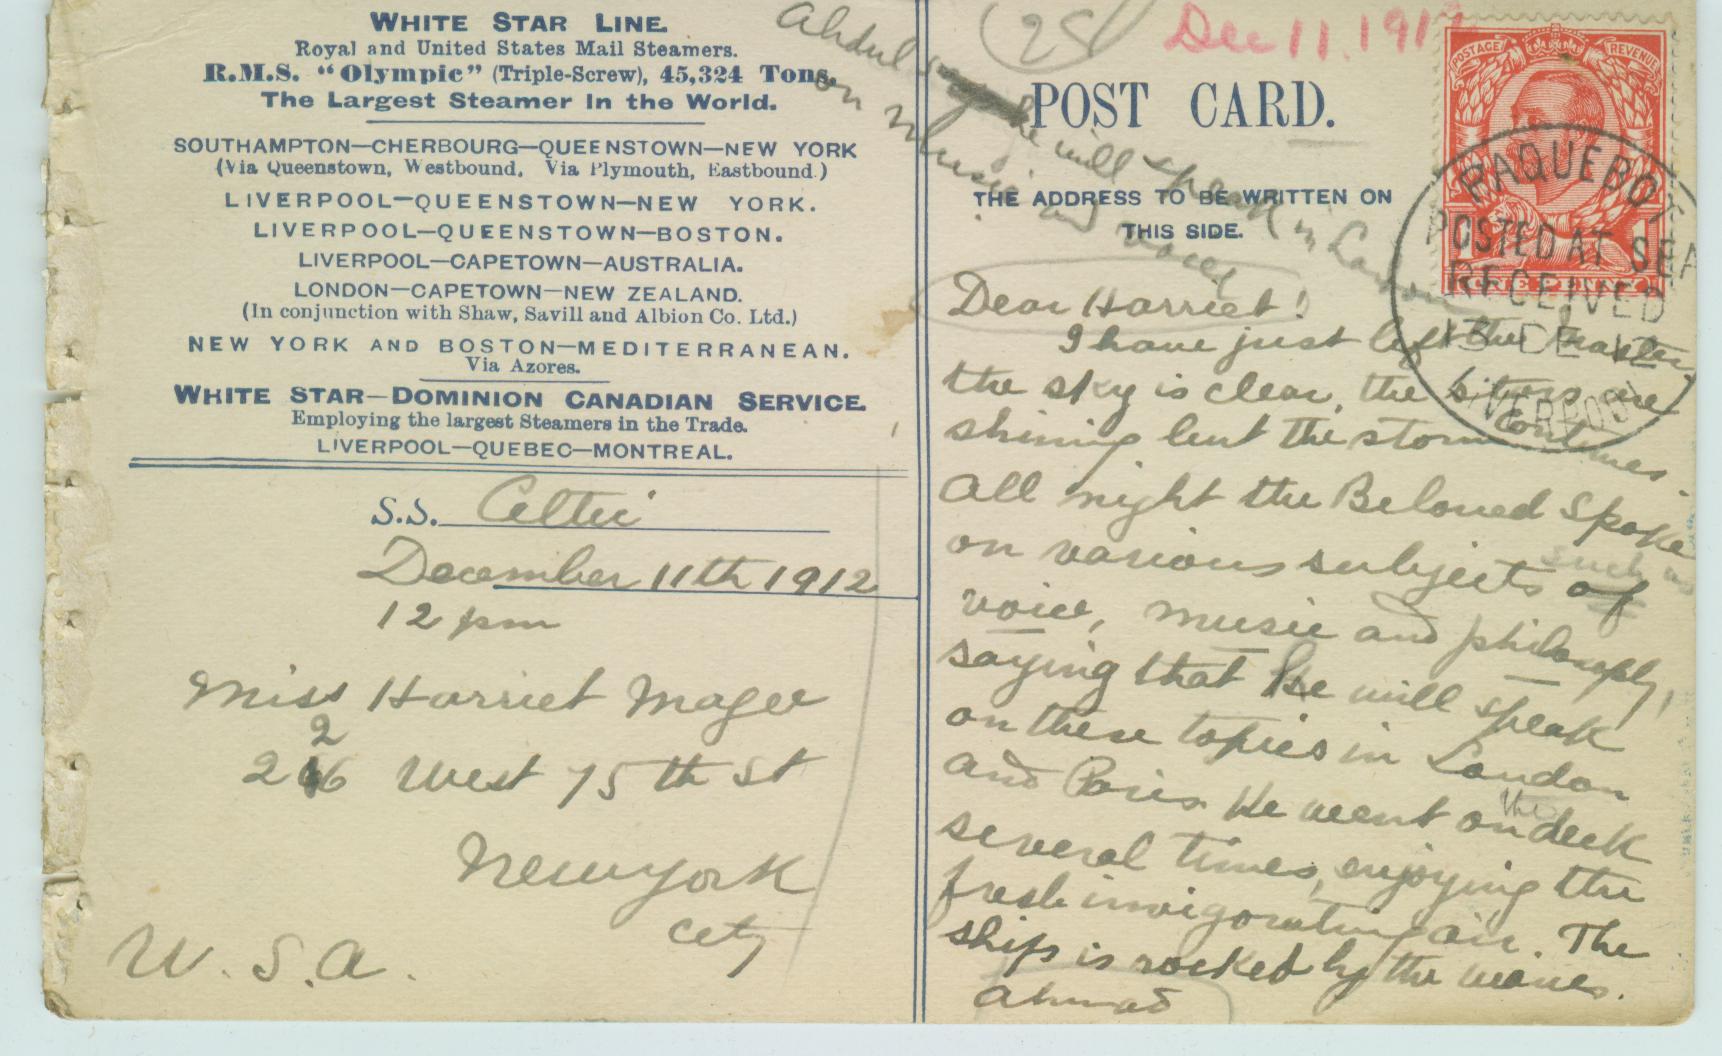 WHITE STAR LINE.
Royal and United States Mail Steamers.
R.M.S. "Olympic" (Triple-Screw), 45,324 Tons.
The Largest Steamer in the World.
SOUTHAMPTON—CHERBOURG—QUEENSTOWN—NEW YORK
(Via Queenstown, Westbound, Via Plymouth, Eastbound.)
LIVERPOOL—QUEENSTOWN—NEW YORK.
LIVERPOOL—QUEENSTOWN—BOSTON.
LIVERPOOL—CAPETOWN—AUSTRALIA.
LONDON—CAPETOWN—NEW ZEALAND.
(In conjunction with Shaw, Savill and Albion Co. Ltd.)
NEW YORK AND BOSTON—MEDITERRANEAN.
Via Azores.
WHITE STAR—DOMINION CANADIAN SERVICE.
Employing the largest Steamers in the Trade.
LIVERPOOL—QUEBEC—MONTREAL.
S.S. Celtic
December 11th 1912
12 pm
Miss Harriet Magee
226 West 75th St
New York
City
U.S.A.
25
Dec 11. 191
he will speak in London
on music and voice
POST CARD.
THE ADDRESS TO BE WRITTEN ON
THIS SIDE.
POSTAGE REVENUE
PAQUEBOT
POSTED AT SEA
RECEIVED
13 DE 12
LIVERPOOL
Dear Harriet!
I have just left the Master,
the sky is clear, the stars are
shining but the storm continues.
All night the Beloved spoke
on various subjects of such as
voice, music and philosophy,
saying that He will speak
on these topics in London
and Paris. He went on the deck
several times, enjoying the
fresh invigorating air. The
ship is rocked by the waves.
Ahmad